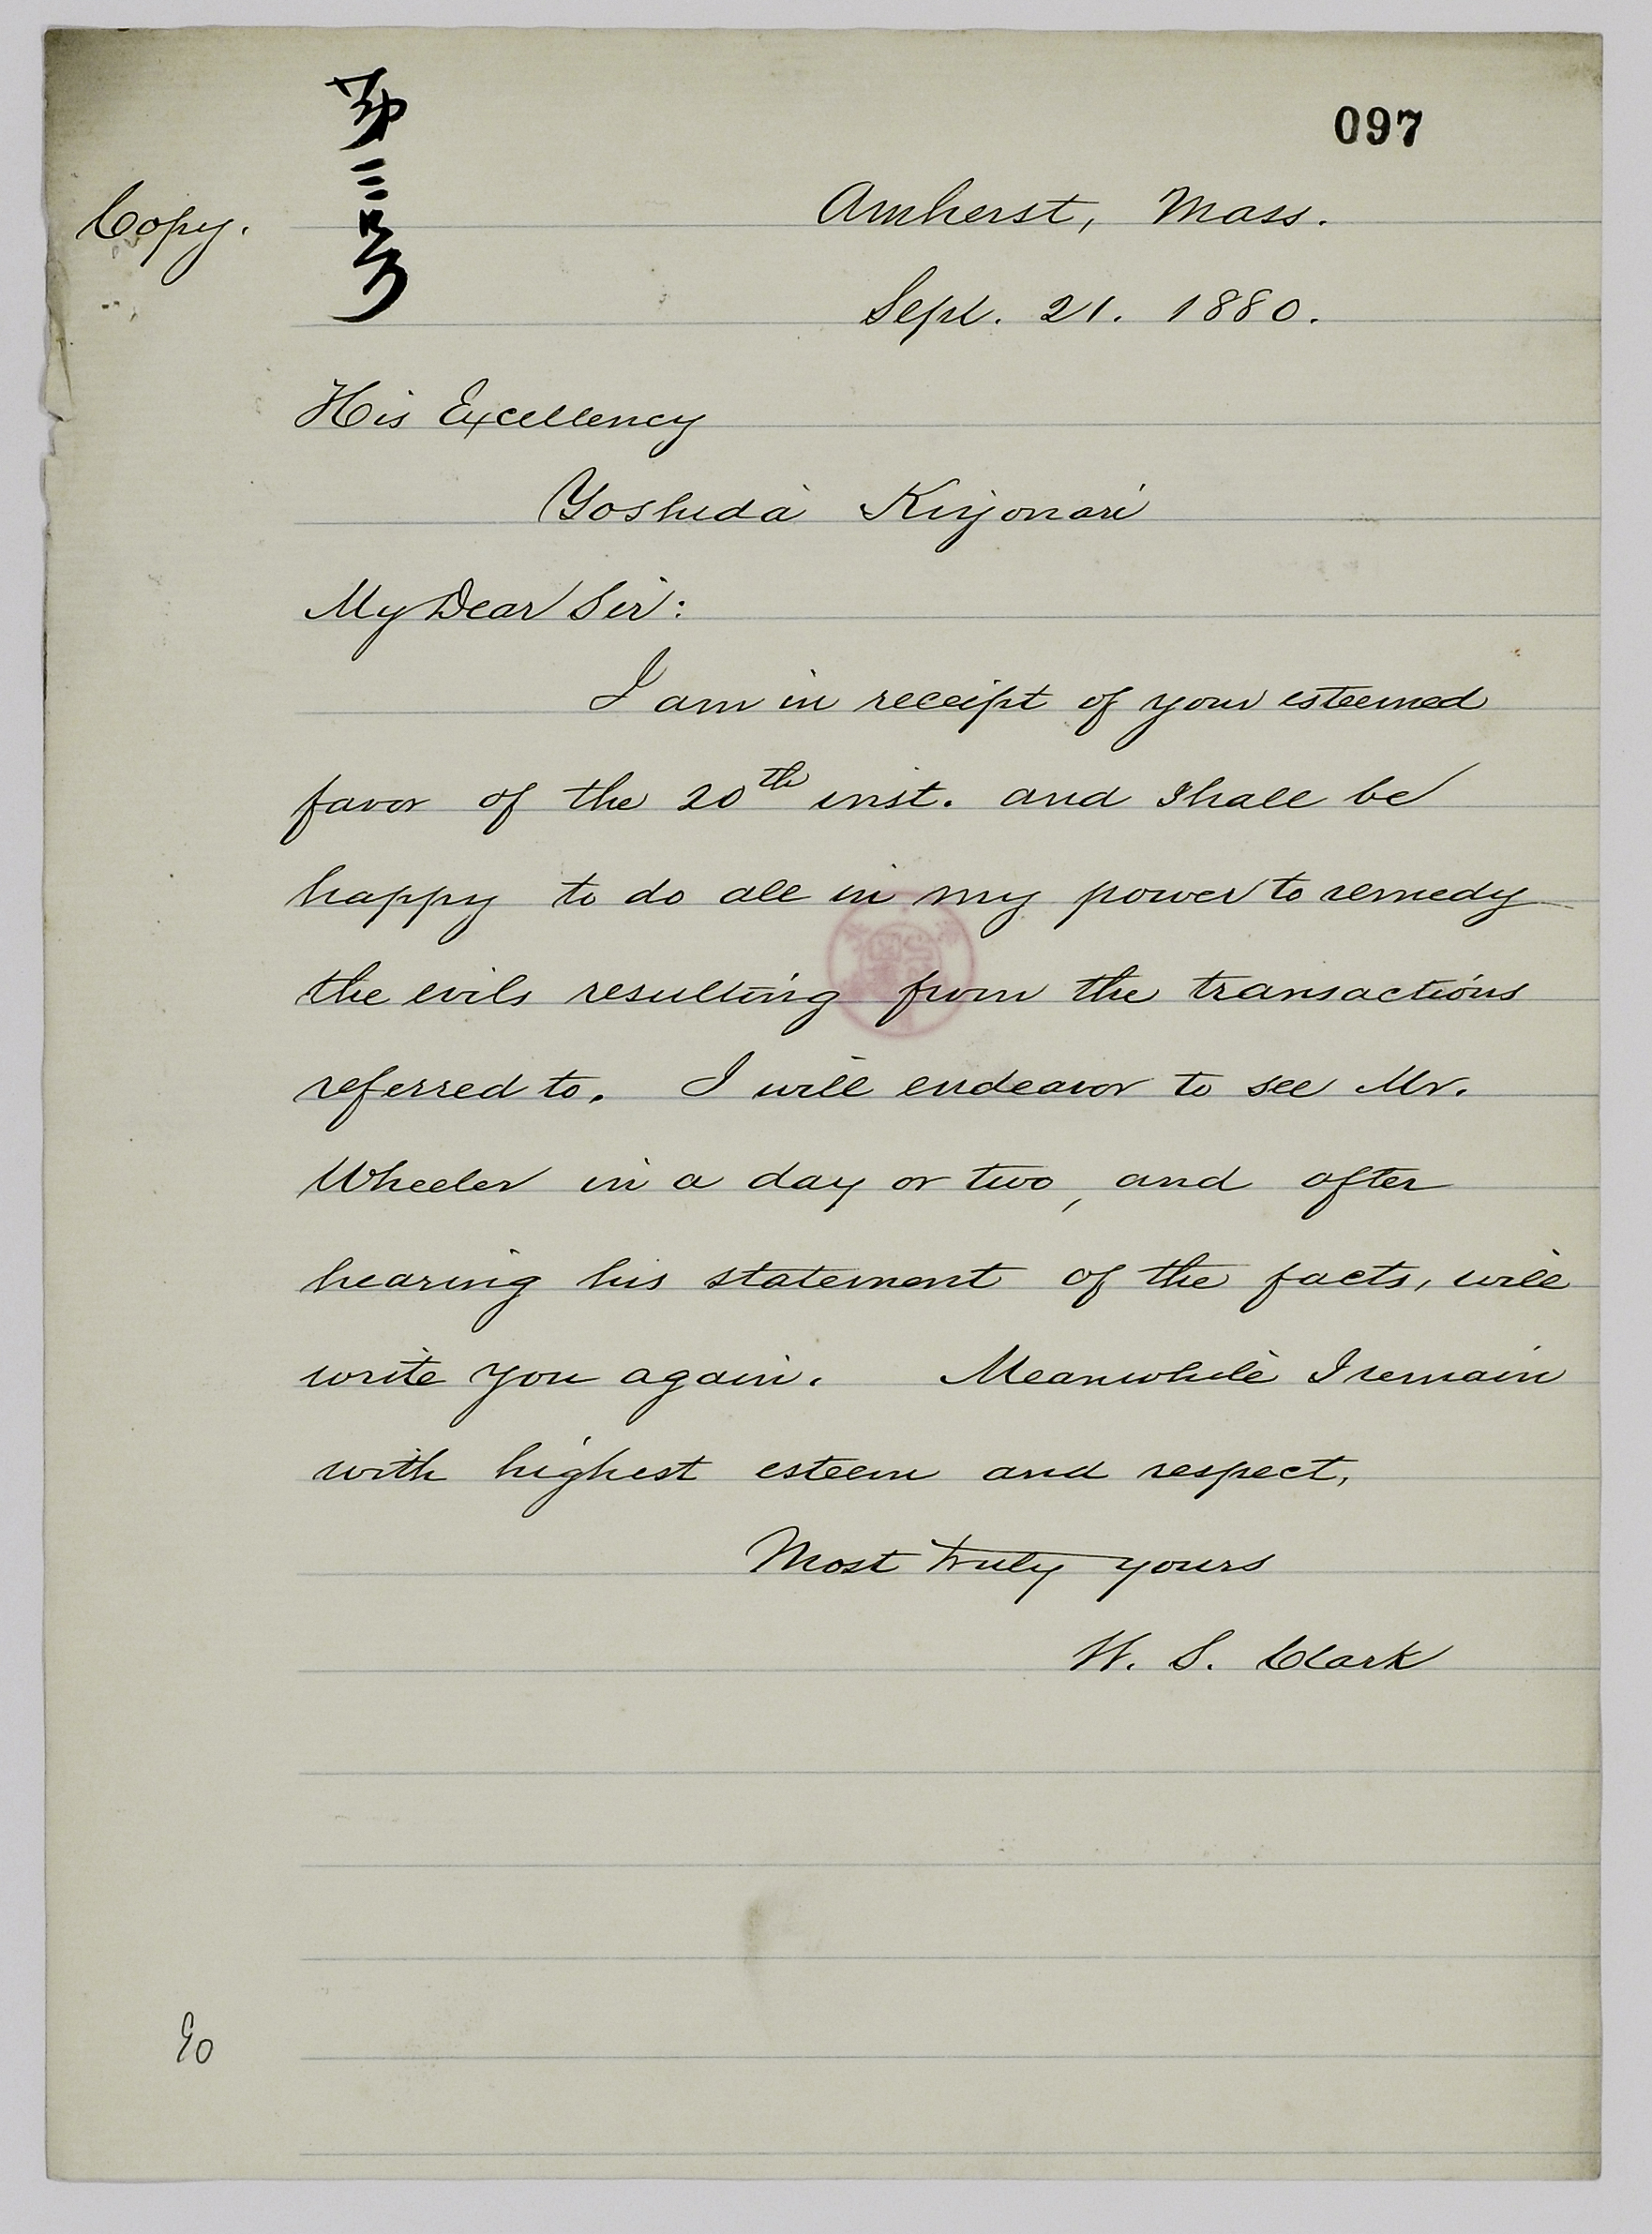 第三号
097
Copy.
Amherst, Mass.
Sept. 21. 1880.
His Excellency
Yoshida Kiyonari
My Dear Sir:
I am in receipt of your esteemed
favor of the 20th inst. and shall be
happy to do all in my power to remedy
the evils resulting from the transactions
referred to. I will endeavor to see Mr.
Wheeler in a day or two, and after
hearing his statement of the facts, will
write you again. Meanwhile I remain
with highest esteem and respect,
Most truly yours
W. S. Clark